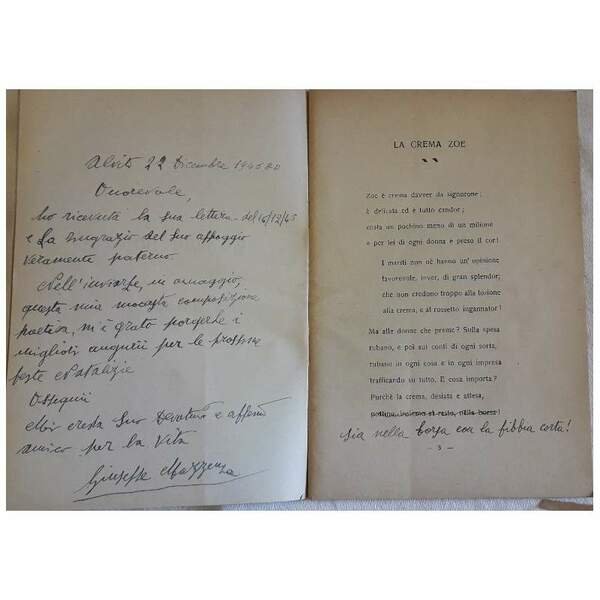 Alvito 22 Dicembre 1945
Onorevole,
ho ricevuto la sua lettera del 16/12/45
e La ringrazio del Suo appoggio
veramente paterno
Nell'inviarLe, in omaggio,
questa mia modesta composizione
poetica, m'è grato porgerLe i
migliori auguri per le prossime
feste Natalizie
Ossequii
Mi creda Suo Devotmo e affmo
amico per la Vita
Giuseppe Mazzenga
LA CREMA ZOE
Zoe è crema davver da signorone;
è delicata ed è tutto candor;
costa un pochino meno di un milione
e per lei di ogni donna è preso il cor!
I mariti non nè hanno un'opinione
favorevole, inver, di gran splendor;
che non credono troppo alla lozione
alla crema, e al rossetto ingannator!
Ma alle donne che preme? Sulla spesa
rubano, e poi sui conti di ogni sorta,
rubano in ogni cosa e in ogni impresa
trafficando su tutto. E cosa importa?
Purchè la crema, desiata e attesa,
sia nella borsa con la fibbia corta!
— 5 —